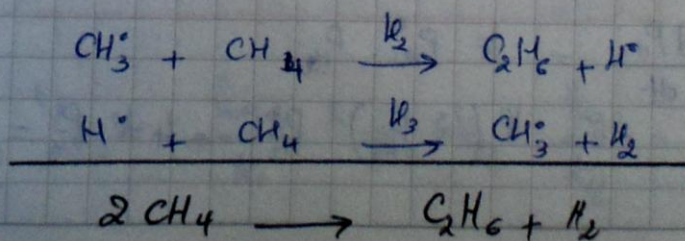 CH₃• + CH₄ —k₂→ C₂H₆ + H•
H• + CH₄ —k₃→ CH₃• + H₂
2 CH₄ ⟶ C₂H₆ + H₂